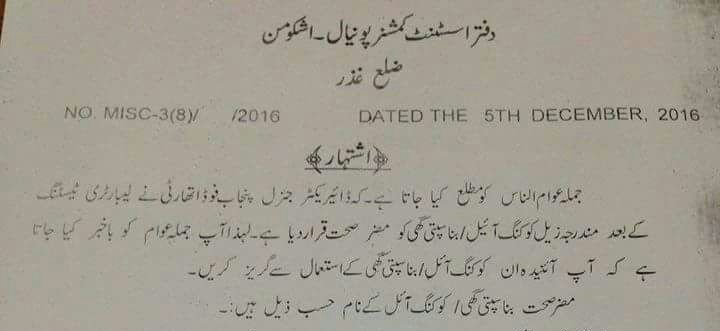 دفتر اسسٹنٹ کمشنر پونیال۔ اشکومن
ضلع غذر
NO. MISC-3(8)/ /2016 DATED THE 5TH DECEMBER, 2016
﴿اشتہار﴾
جملہ عوام الناس کو مطلع کیا جاتا ہے۔ کہ ڈائیریکٹر جنرل پنجاب فوڈ اتھارٹی نے لیبارٹری ٹیسٹنگ
کے بعد مندرجہ زیل کوکنگ آئیل/ بناسپتی گھی کو مضر صحت قرار دیا ہے۔ لہذا آپ جملہ عوام کو باخبر کیا جاتا
ہے کہ آپ آئیندہ ان کوکنگ آئل/ بناسپتی گھی کے استعمال سے گریز کریں۔
مضر صحت بناسپتی گھی/ کوکنگ آئل کے نام حسب ذیل ہیں:۔